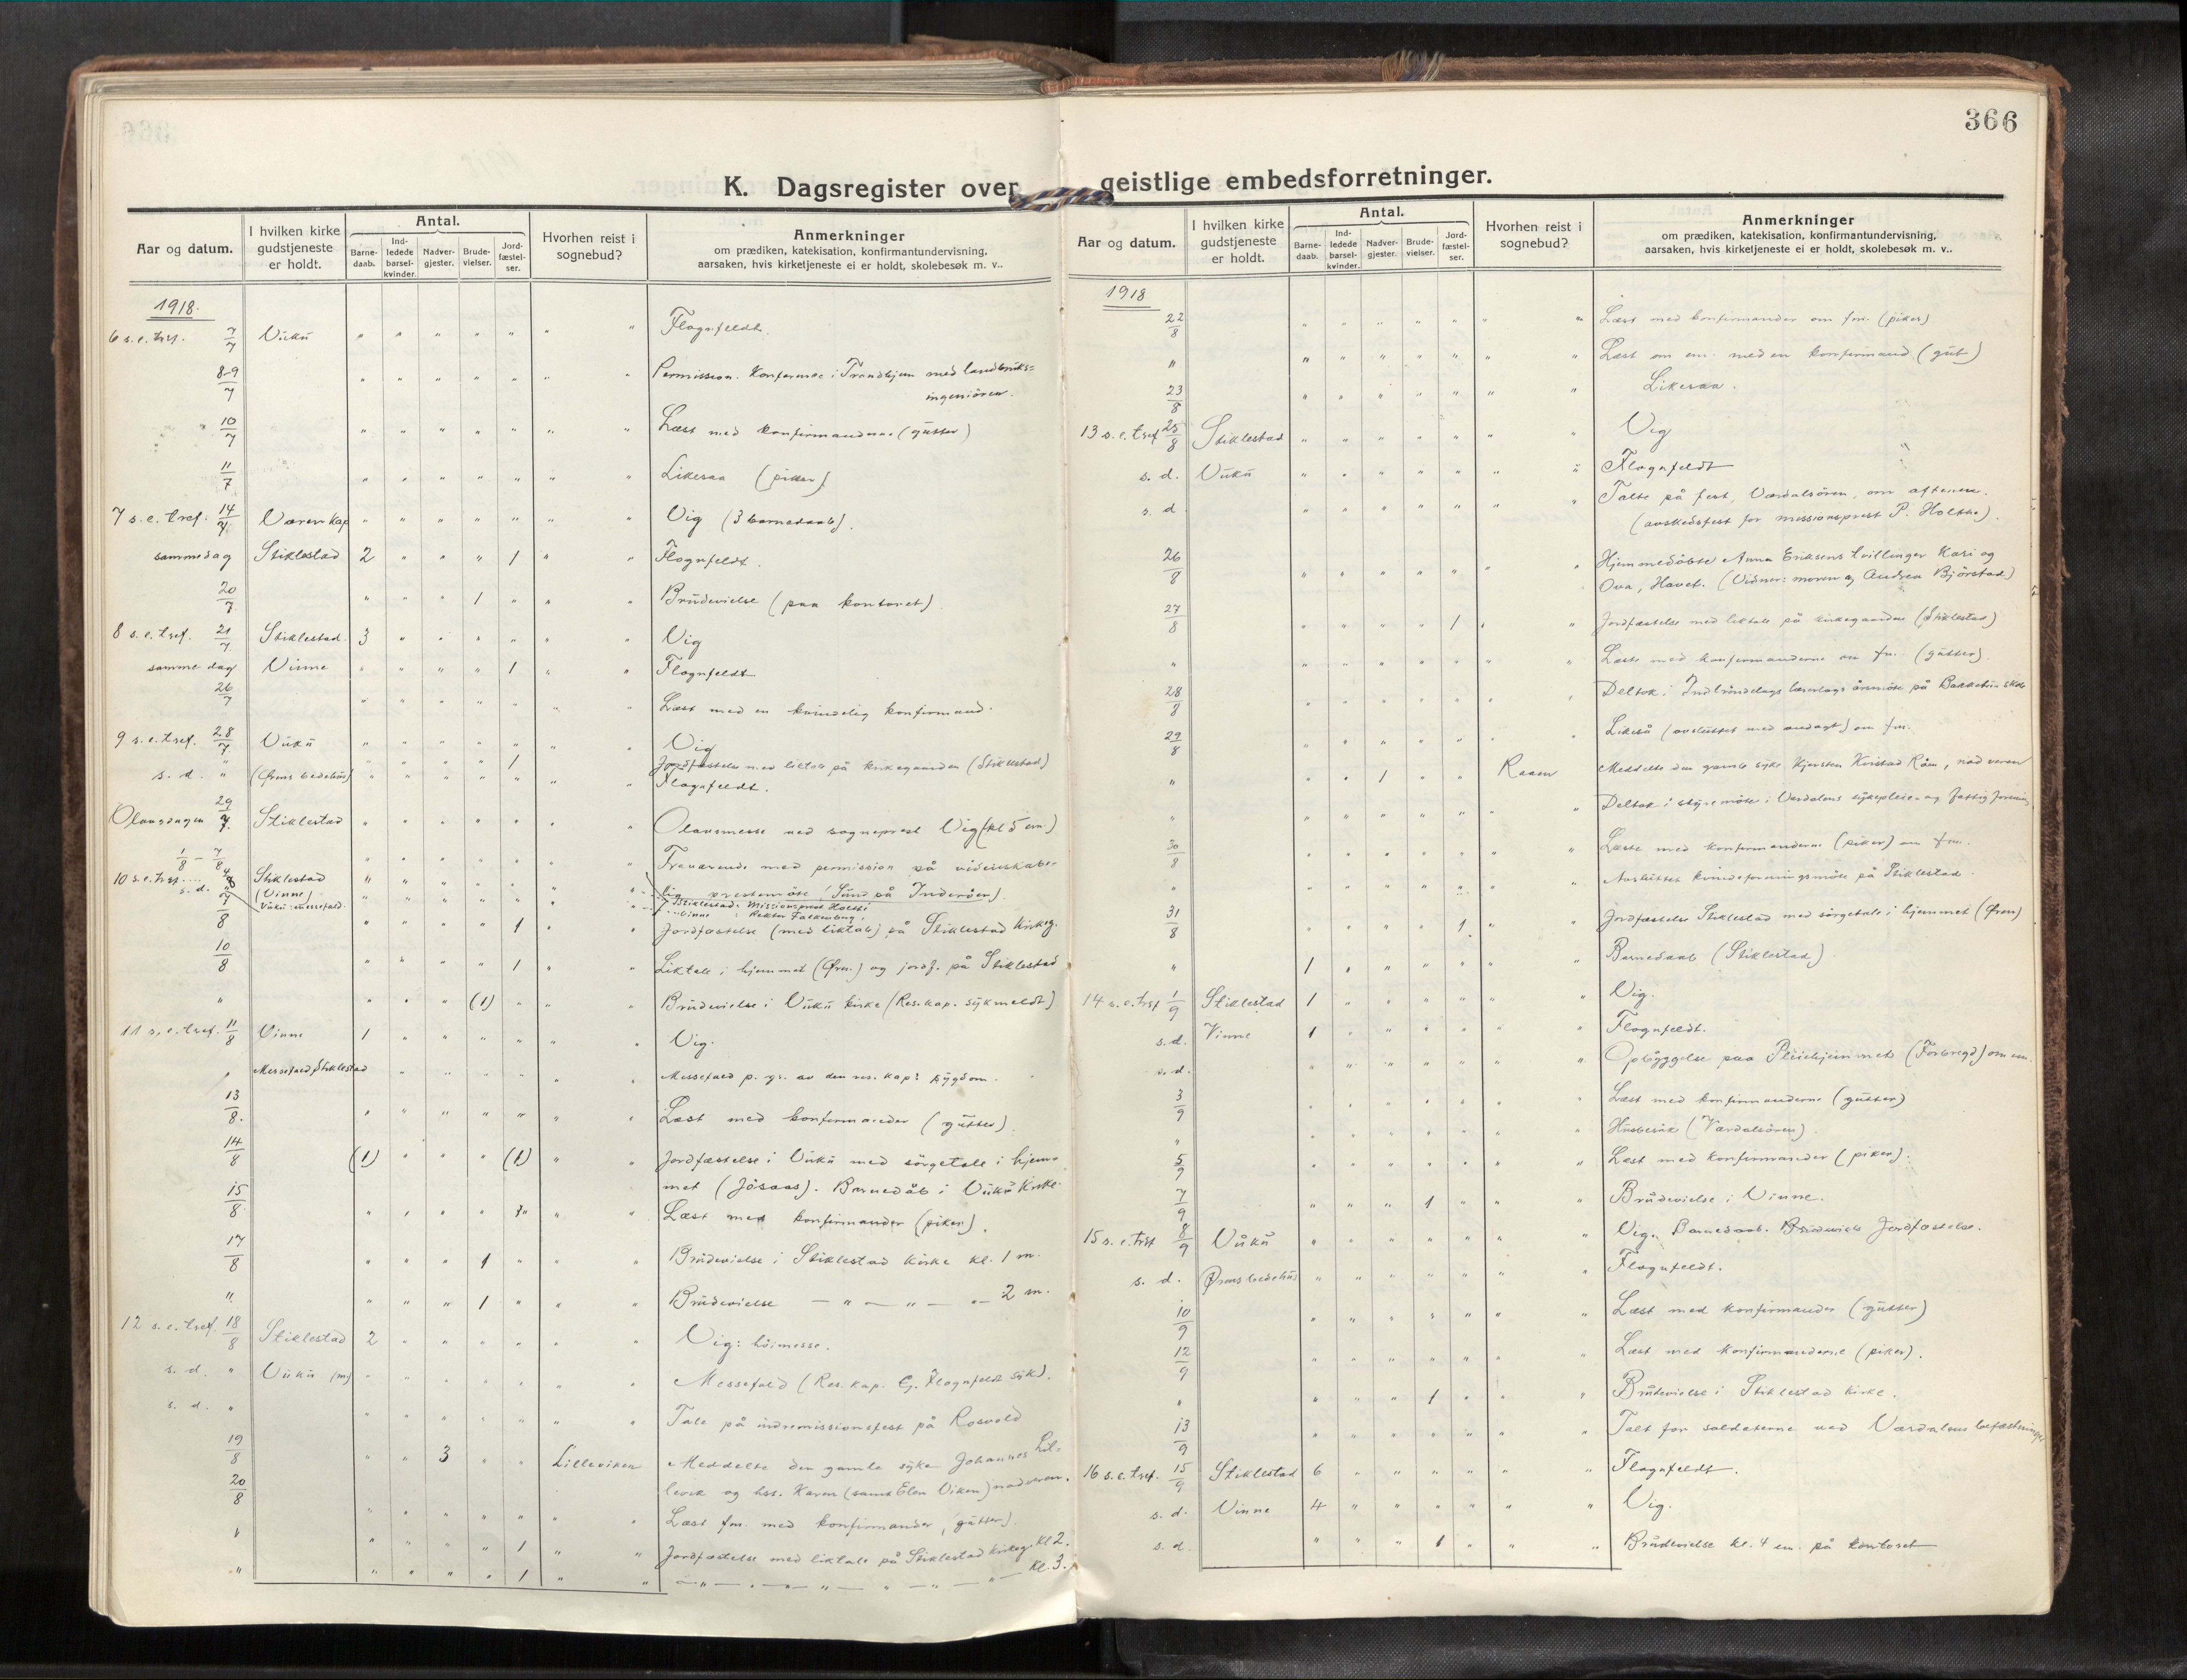 366
K. Dagsregister over geistlige embedsforretninger.
Aar og datum.
I hvilken kirke gudstjeneste er holdt.
Antal.
Barne-daab.
Ind-ledede barsel-kvinder.
Nadver-gjester.
Brude-vielser.
Jord-fæstel-ser.
Hvorhen reist i sognebud?
Anmerkninger
om prædiken, katekisation, konfirmantundervisning,
aarsaken, hvis kirketjeneste ei er holdt, skolebesøk m. v..
1918.
6 s. e. tref. 7/7 Vuku " " " " " " " Flognfeldt.
8-9/7 " " " " " " " Permission. Konferanse i Trondhjem med landbruks=
ingeniören.
10/7 " " " " " " " Læst med konfirmanderne (gutter)
11/7 " " " " " " " Likesaa (piker)
7 s. e. tref. 14/7 Væren Kap " " " " " " " Vig (3 barnedaab).
samme dag Stiklestad 2 " " " 1 " " Flognfeldt.
20/7 " " " 1 " " " Brudevielse (paa kontoret)
8 s. e. tref. 21/7 Stiklestad. 3 " " " " " " Vig
samme dag Vinne " " " " 1 " " Flognfeldt
26/7 " " " " " " " Læst med en kvindelig konfirmand.
9 s. e. tref. 28/7 Vuku " " " " " " " Vig
" " " " " 1 Jordfæstelse med liktale på kirkegaarden (Stiklestad)
s. d. " (Ørens bedehus) " " " " " " " Flognfeldt.
Olavsdagen 29/7 Stiklestad " " " " " " " Olavsmesse ved sogneprest Vig (kl 5 em.)
1/8 - 7/8 " " " " " " " Fraværende med permission på videnskabe-
lig prestemöte (Sund på Inderöen).
10 s. e. tref. 4/8 Stiklestad " " " " " Stiklestad: Missionsprest Holthe
s. d. (Vinne) " " " " " Vinne : Rektor Falkenberg.
Vuku: messefald.
7/8 " " " " 1 " " Jordfæstelse (med liktale) på Stiklestad Kirkeg.
10/8 " " " " 1 " " Liktale i hjemmet (Øren.) og jordf. på Stiklestad
" " " " (1) " " " Brudevielse i Vuku kirke (Res. kap. sykmeldt)
11 s. e. tref. 11/8 Vinne 1 " " " " " " Vig.
" Messefald Stiklestad " " " " " " Messefald p. gr. av den res. kap's sygdom.
13/8. " " " " " " " Læst med konfirmander (gutter).
14/8 (1) " " " (1) " " Jordfæstelse i Vuku med sörgetale i hjem=
met (Jösaas). Barnedåb i Vuku Kirke.
15/8 " " " " " " " Læst med konfirmander (piker).
17/8 " " " 1 " " " Brudevielse i Stiklestad Kirke kl. 1 m.
" " " " 1 " " " Brudevielse — " — " — " — 2 m.
12 s. e. tref. 18/8 Stiklestad 2 " " " " " " Vig: höimesse.
s. d. " Vuku (m) " " " " " " " Messefald (Res. Kap. G. Flognfeldt syk).
s. d. " " " " " " " " Tale på indremissionsfest på Rosvold
19/8 " " 3 " " Lilleviken Meddelte den gamle syke Johannes Lil-
levik og hst. Karen (samt Elen Viken) nadveren.
20/8 " " " " " " " Læst fm. med konfirmander (gutter).
" " " " " 1 " " Jordfæstelse med liktale på Stiklestad kirkeg. kl 2.
" " " " " 1 " " — " — " — " — " — " — " — kl. 3.
Aar og datum.
I hvilken kirke gudstjeneste er holdt.
Antal.
Barne-daab.
Ind-ledede barsel-kvinder.
Nadver-gjester.
Brude-vielser.
Jord-fæstel-ser.
Hvorhen reist i sognebud?
Anmerkninger
om prædiken, katekisation, konfirmantundervisning,
aarsaken, hvis kirketjeneste ei er holdt, skolebesøk m. v..
1918
22/8 " " " " " " " Læst med konfirmander om fm. (piker)
" " " " " " " " Læst om em. med en konfirmand (gut)
23/8 " " " " " " " Likesaa.
13 s. e. tref 25/8 Stiklestad " " " " " " " Vig
s. d. Vuku " " " " " " " Flognfeldt
s. d " " " " " " " Talte på fest, Værdalsören, om aftenen.
(avskedsfest for missionsprest P. Holthe).
26/8 " " " " " " " Hjemmedöbte Anna Eriksens tvillinger Kari og
Ova, Havet. (Vidner: moren og Andrea Björstad)
27/8 " " " " 1 " " Jordfæstelse med liktale på kirkegaarden (Stiklestad)
" " " " " " " " Læste med konfirmanderne om fm. (gutter).
28/8 " " " " " " " Deltok i Indtröndelags lærerlags årsmöte på skole
29/8 " " " " " " " Likeså (avsluttet med andagt) om fm.
" " " 1 " " Raaen Meddelte den gamle syke Kjersten Kvistad Råen, nadveren
" " " " " " " Deltok i styremöte i Værdalens sykepleie- og fattigforening
30/8 " " " " " " " Læste med konfirmanderne (piker) om fm.
" " " " " " " " Avsluttet kvindeforeningsmöte på Stiklestad.
31/8 " " " " 1 " " Jordfæstelse Stiklestad med sörgetale i hjemmet (Øren)
" 1 " " " " " " Barnedaab (Stiklestad).
14 s. e. tref 1/9 Stiklestad 1 " " " " " " Vig.
s. d. Vinne 1 " " " " " " Flognfeldt.
s. d. " " " " " " " Opbyggelse paa Pleiehjemmet (Forbregd) om em.
3/9 " " " " " " " Læst med konfirmanderne (gutter)
" " " " " " " " Husbesök (Værdalsören).
5/9 " " " " " " " Læst med konfirmander (piker).
7/9 " " " 1 " " " Brudevielse i Vinne.
15 s. e. tref 8/9 Vuku " " " " " " " Vig. Barnedaab. Jordfæstelse.
s. d. Ørens bedehus " " " " " " " Flognfeldt.
10/9 " " " " " " " Læst med konfirmander (gutter)
12/9 " " " " " " " Læst med konfirmanderne (piker).
" " " " 1 " " " Brudevielse i Stiklestad kirke.
13/9 " " " " " " " Talt for soldaterne ved Værdalens befæstninger
16 s. e. tref. 15/9 Stiklestad 6 " " " " " " Flognfeldt.
s. d. Vinne 4 " " " " " " Vig.
s. d. " " " 1 " " " Brudevielse kl. 4 em. på kontoret